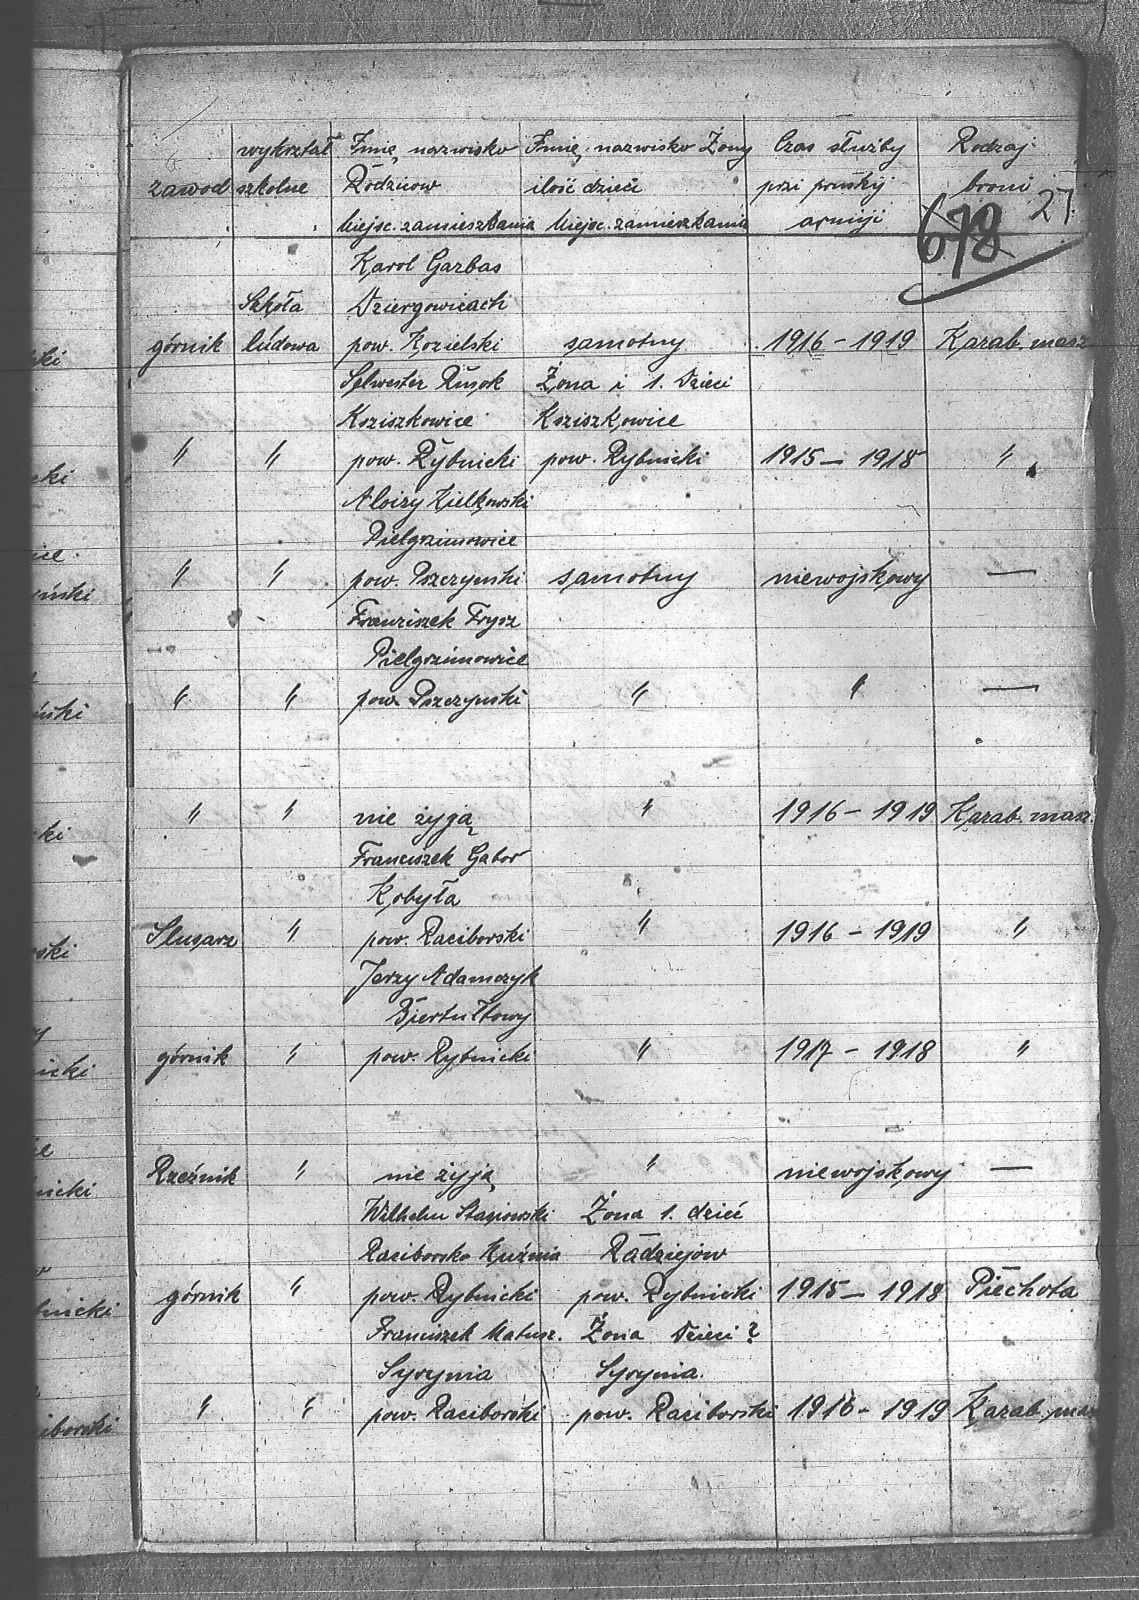 wykształ Imię nazwisko Imię, nazwisko Żony Czas służby Rodzaj
zawod szkolne Rodziców ilość dzieci przi pruskij broni 27.
Miejsc. zamieszkania Miejsc. zamieszkania armiji 678
Karol Garbas
Szkoła Dziergowicach
górnik ludowa pow. Kozielski samotny 1916 - 1919 Karab. masz
Sylwester Rusok Żona i 1. Dzieci
Kosiszkowice Kosiszkowice
" " pow. Rybnicki pow. Rybnicki 1915 - 1918 "
Aloizy Kielkowski
Pielgrzimowice
" " pow. Pszczynski samotny niewojskowy —
Franziszek Frysz
Pielgrzimowice
" " pow. Pszczynski " " —
" " nie żyją " 1916 - 1919 Karab. masz.
Franciszek Gabor
Kobyła
Slusarz " pow. Raciborski " 1916 - 1919 "
Jerzy Adamczyk
Biertułtowy
górnik " pow. Rybnicki " 1917 - 1918 "
Rzeźnik " nie żyją " niewojskowy —
Wilhelm Żona 1. dzieć
Raciborsko Kuźnia Radziejów
górnik " pow. Rybnicki pow. Rybnicki 1915 - 1918 Piechota
Franciszek Matusz. Żona Dzieci ?
Syrynia Syrynia.
" " pow. Raciborski pow. Raciborski 1916 - 1919 Karab. ma